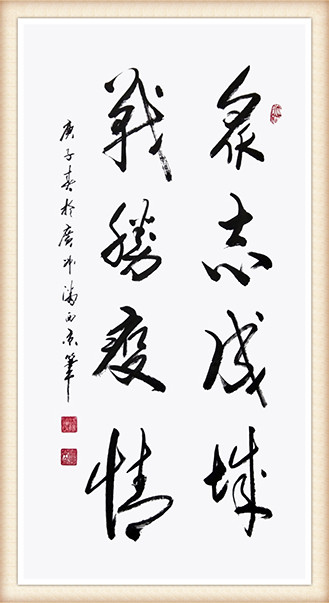 眾志成城
戰勝疫情
庚子春於廣州潘玉京筆